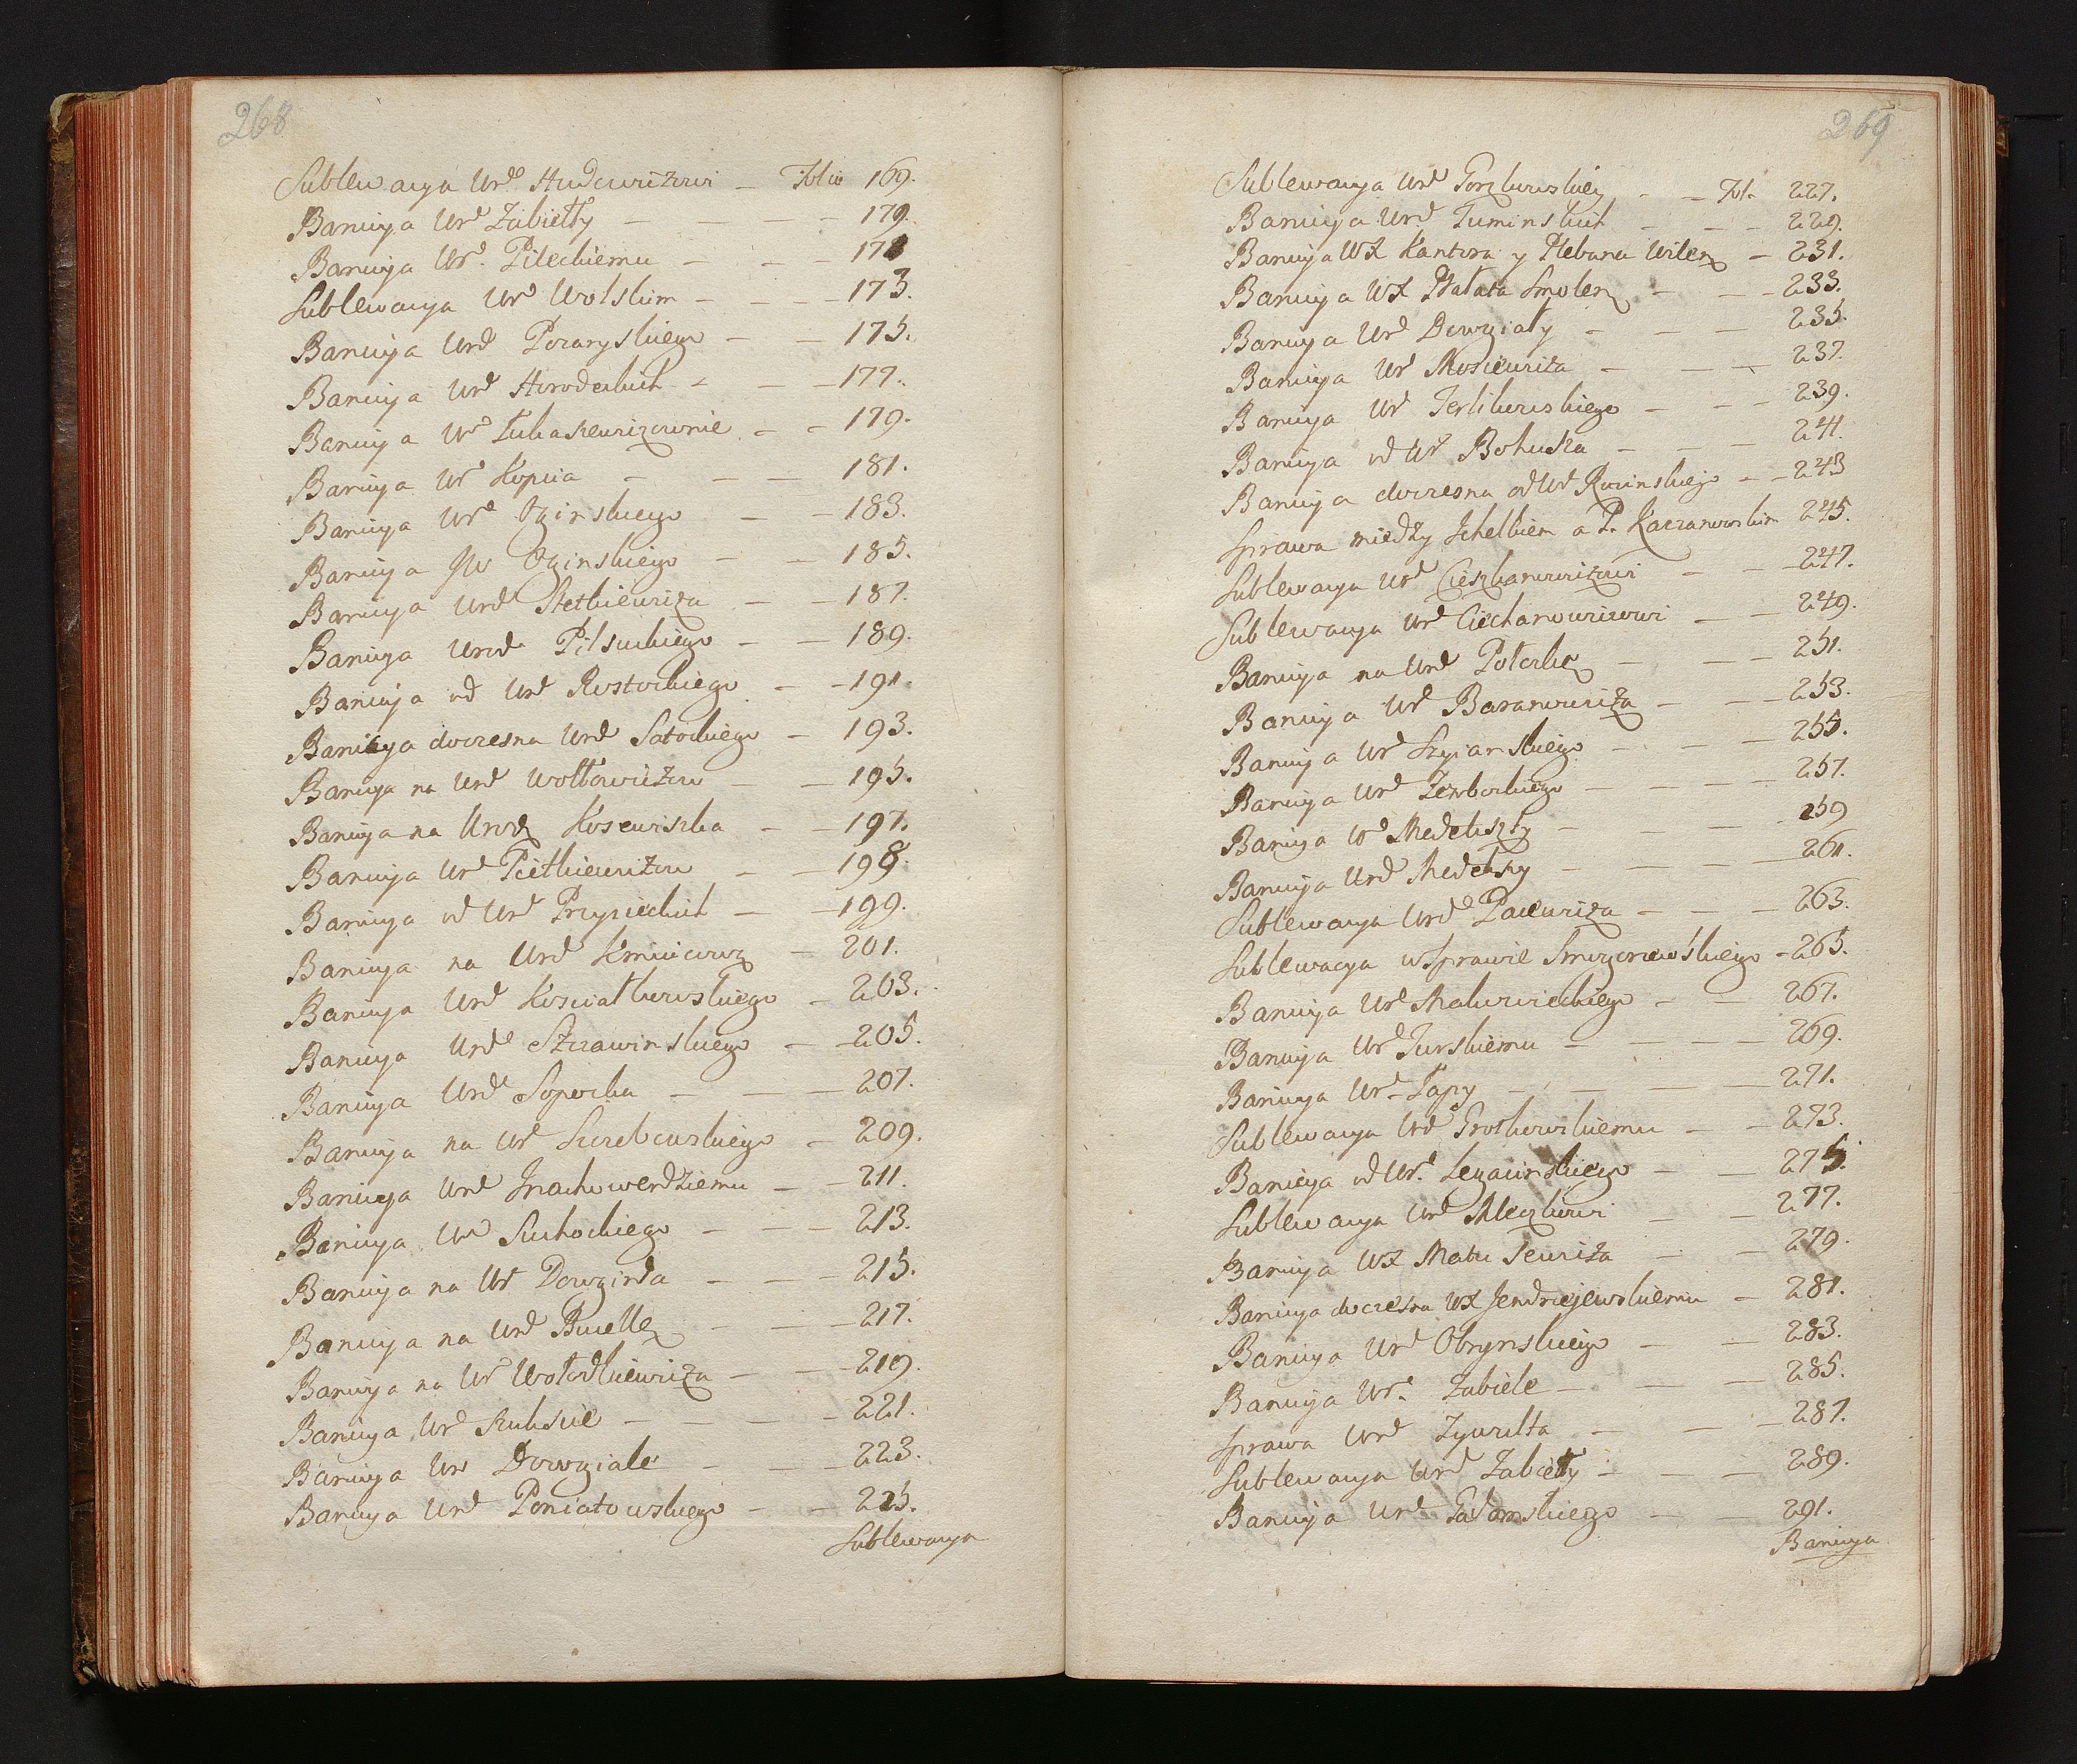 268
Sublewacya Urd Hudowiczowi — Folio 169.
Banicya Urd Zabiełły — 179.
Banicya Ur. Pileckiemu — 171
Sublewacya Urd Wolskim — 173.
Banicya Urd Poraryskiego — 175.
Banicya Urd Horodeckich — 177.
Banicya Ur Łukaszewiczownie — 179.
Banicya Ur Kopcia — 181.
Banicya Urd Oginskiego — 183.
Banicya JW Oginskiego — 185.
Banicya Urd Stetkiewicza — 187.
Banicya Urod Pilsuckiego — 189.
Banicya od Urd Rostockiego — 191.
Banicya doczesna Urd Sołockiego — 193.
Banicya na Urd Wołłowiczow — 195.
Banicya na Urodz Kosewiszka — 197.
Banicya Urd Pietkiewiczow — 198.
Banicya od Urd Przysieckich — 199.
Banicya na Urd Kmicicową — 201.
Banicya Urd Kosciałkowskiego — 203.
Banicya Urd Szczawinskiego — 205.
Banicya Urd Sopocka — 207.
Banicya na Ur Szczebowskiego — 209.
Banicya Urd Jnachowerdziemu — 211.
Banicya Ur Suchockiego — 213.
Banicya na Ur Dowgirda — 215.
Banicya na Urd Bucellę — 217.
Banicya na Ur Wołodkiewicza — 219.
Banicya Ur Szukscie — 221.
Banicya Ur Dowgiale — 223.
Banicya Urd Poniatowskiego — 225.
Sublewacya
269
Sublewacya Urd Gorzkowskiey — Fol. 227.
Banicya Urd Tuminskich — 229.
Banicya WX Kantora y Plebana Wilen — 231.
Banicya WX Prałata Smolen — 233.
Banicya Urd Dowgiały — 235.
Banicya Ur Mosiewicza — 237.
Banicya Ur Jerlikowskiego — 239.
Banicya od Ur Bohusza — 241.
Banicya doczesna od Ur Rucinskiego — 243
Sprawa między Jchelkiem a P. Kaczanowskim 245.
Sublewacya Urd Cieszkanowiczowi — 247.
Sublewacya Urd Ciechanowiczowi — 249.
Banicya na Urd Potocką — 251.
Banicya Urd Baranowicza — 253.
Banicya Urd Szpianskiego — 255.
Banicya Urd Zembockiego — 257.
Banicya Ur Medekszy — 259
Banicya Urd Medekszy — 261.
Sublewacya Urd Pacewicza — 263.
Sublewacya w Sprawie Smogorzewskiego — 265.
Banicya Urd Makowieckiego — 267.
Banicya Ur Turskiemu — 269.
Banicya Ur Łapy — 271.
Sublewacya Urd Grotkowskiemu — 273.
Banicya od Ur. Legawinskiego — 275.
Sublewacya Urd Mleczkowi — 277.
Banicya WX Matusewicza — 279.
Banicya doczesna WX Jendrzejewskiemu — 281.
Banicya Urd Obrynskiego — 283.
Banicya Ur. Zabiele — 285.
Sprawa Urd Zywulta — 287.
Sublewacya Urd Zabiełły — 289.
Banicya Urd Gadomskiego — 291.
Banicya